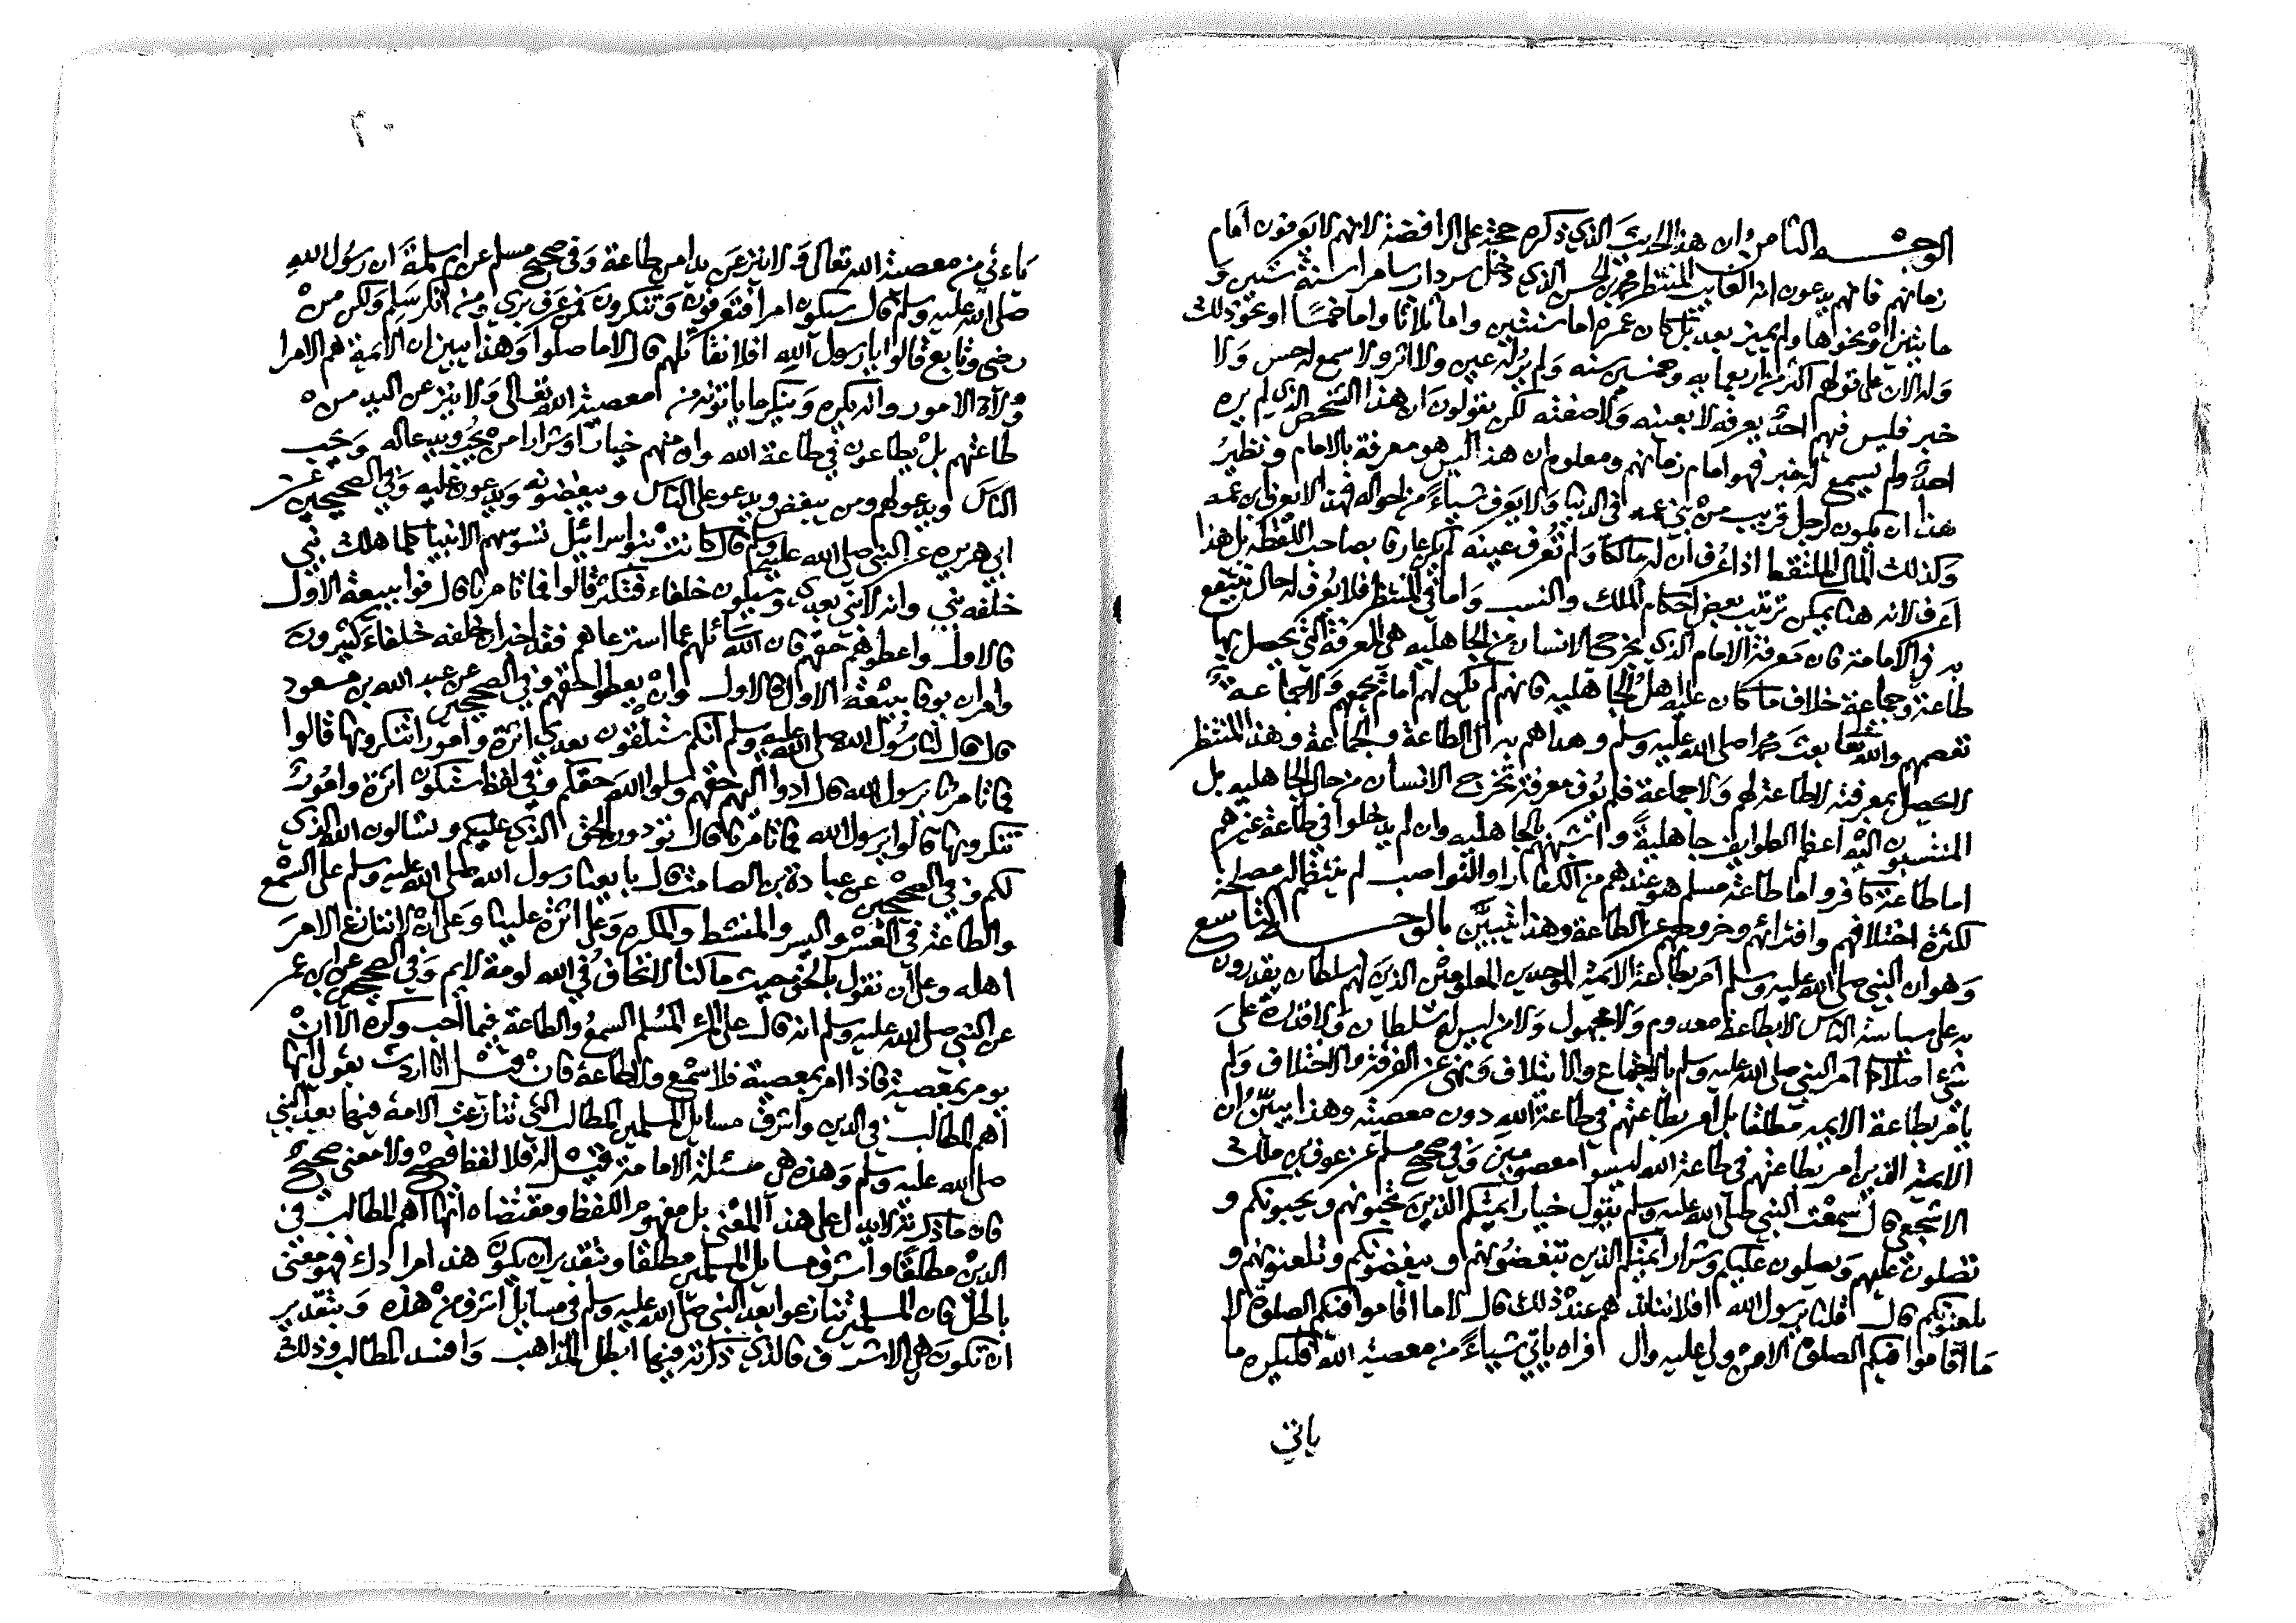 الوجه الثامن ان هذا الحديث الذي ذكره حجة على الرافضة لانهم لا يعرفون امام
زمانهم فانهم يدعون انه الغايب المنتظر محمد بن الحسن الذي دخل سرداب سامرا سنة ستين و
مايتين او نحوها ولم يميز بعد بل كان عمره اما سنتين واما ثلاثا واما خمسا او نحو ذلك
وله الان على قولهم اكثر من اربعمايه وخمسين سنه ولم ير له عين ولا اثر ولا سمع له حس ولا
خبر فليس فيهم احد يعرفه لا بعينه ولا صفته لكن يقولون ان هذا الشخص الذي لم يره
احد ولم يسمع له خبر فهو امام زمانهم ومعلوم ان هذا ليس هو معرفة بالامام ونظير
هذا ان يكون لرجل قريب من بني عمه في الدنيا ولا يعرف شياء من احواله فهذا لا يعرف ابن عمه
وكذلك المال الملتقط اذا عرف ان له مالكا ولم تعرف عينه لم يكن عارفا بصاحب اللقطة بل هذا
اعرف لانه هنا يمكن ترتيب بعض احكام الملك والنسب واما في المنتظر فلا يعرف له حال ينتفع
به في الامامة فان معرفة الامام الذي يخرج الانسان من الجاهليه هي المعرفة التي يحصل بها
طاعة وجماعة خلاف ما كان عليه اهل الجاهليه فانهم لم يكن لهم امام يجمعهم ولا جماعة
تعصمهم والله تعا بعث محمدا صلى الله عليه وسلم وهداهم به الى الطاعة والجماعة وهذا المنتظر
لا يحصل بمعرفته لا طاعة لهم ولا جماعة فلم يعرف معرفة تخرج الانسان من حال الجاهليه بل
المنتسبون اليه اعظم الطوايف جاهلية واشبههم بالجاهليه وان لم يدخلوا في طاعة غيرهم
اما طاعة كافر واما طاعة مسلم هو عندهم من الكفار او النواصب لم ينتظم لهم مصلحة
لكثرة اختلافهم وافترائهم وخروجهم عن الطاعة وهذا يتبين بالوجه التاسع
وهو ان النبي صلى الله عليه وسلم امر بطاعة الايمة الموجودين المعلومين الذين لهم سلطان يقدرون
به على سياسة الناس لا بطاعة معدوم ولا مجهول ولا من ليس له سلطان ولا قدرة على
شيء اصلا كما امر النبي صلى الله عليه وسلم بالاجتماع والايتلاف ونهى عن الفرقة والاختلاف ولم
يامر بطاعة الايمه مطلقا بل امر بطاعتهم في طاعة الله دون معصيته وهذا يبين ان
الايمة الذين امر بطاعتهم في طاعة الله ليسوا معصومين وفي صحيح مسلم عن عوف بن ملك
الاشجعي قال سمعت النبي صلى الله عليه وسلم يقول خيار ايمتكم الذين تحبونهم ويحبونكم و
تصلون عليهم ويصلون عليكم وشرار ايمتكم الذين تبغضونهم ويبغضونكم وتلعنونهم و
يلعنونكم قال قلنا يرسول الله افلا ننابذهم عند ذلك قال لا ما اقاموا فيكم الصلوة لا
ما اقاموا فيكم الصلوة الا من ولي عليه وال افراه ياتي شياء من معصية الله فليكره ما
ياتي
٢٠
ياءتي من معصية الله تعالى ولا ينزعن يدا من طاعة وفي صحيح مسلم عن ام سلمة ان رسول الله
صلى الله عليه وسلم قال ستكون امرا فتعرفون وتنكرون فمن عرف بري ومن انكر سلم ولكن من
رضي وتابع قالوا يا رسول الله افلا نقاتلهم قال لا ما صلوا وهذا يبين ان الائمة هم الامرا
ولاة الامور وانه يكره وينكر ما ياتونه من معصية الله تعالى ولا ينزعن اليد من
طاعتهم بل يطاعون في طاعة الله وان منهم خيارا وشرارا من يحب ويدعا له ويحب
الناس ويدعو لهم ومن يبغض ويدعو على الناس ويبغضونه ويدعون عليه وفي الصحيحين عن
ابي هريره عن النبي صلى الله عليه وسلم قال كانت بنو اسرائيل تسوسهم الانبيا كلما هلك نبي
خلفه نبي وانه لا نبي بعدي وستكون خلفاء فتكثر قالوا فما تامرنا قال فوا ببيعة الاول
فالاول واعطوهم حقهم فان الله سائلهم عما استرعاهم فقد اخبر ان خلفه خلفاء كثيرون
وامر ان يوفا ببيعة الاول فالاول وان يعطوا حقهم وفي الصحيحين عن عبد الله بن مسعود
قال قال لنا رسول الله صلى الله عليه وسلم انكم ستلقون بعدي اثرة وامورا تنكرونها قالوا
فما تامرنا يرسول الله قال ادوا اليهم حقهم وسلوا الله حقكم وفي لفظ ستكون اثرة وامور
تنكرونها قالوا يرسول الله فما تامرنا قال تودون الحق الذي عليكم وتسالون الله الذي
لكم وفي الصحيحين عن عبادة بن الصامت قال بايعنا رسول الله صلى الله عليه وسلم على السمع
والطاعة في العسر واليسر والمنشط والمكره وعلى اثرة علينا وعلى ان لا ننازع الامر
اهله وعلى ان نقول بالحق حيث ما كنا لا نخاف في الله لومة لايم وفي الصحيحين عن ابن عمر
عن النبي صلى الله عليه وسلم انه قال على المرء المسلم السمع والطاعة فيما احب وكره الا ان
يومر بمعصية فاذا امر بمعصية فلا سمع ولا طاعة فان قيل انا اردت بقولي انها
اهم المطالب في الدين واشرف مسايل المسلمين المطالب التي تنازعت الامة فيها بعد النبي
صلى الله عليه وسلم وهذه هي مسئلة الامامة قيل له فلا لفظ فصيح ولا معنى صحيح
فان ما ذكرته لا يدل على هذا المعنى بل مفهوم اللفظ ومقتضاه انها اهم المطالب في
الدين مطلقا واشرف مسايل المسلمين مطلقا وبتقدير ان يكون هذا مرادك فهو معنى
باطل فان المسلمين تنازعوا بعد النبي صلى الله عليه وسلم في مسايل اشرف من هذه وبتقدير
ان تكون هي الاشرف فالذي ذكرته فيها ابطل المذاهب وافسد المطالب وذلك